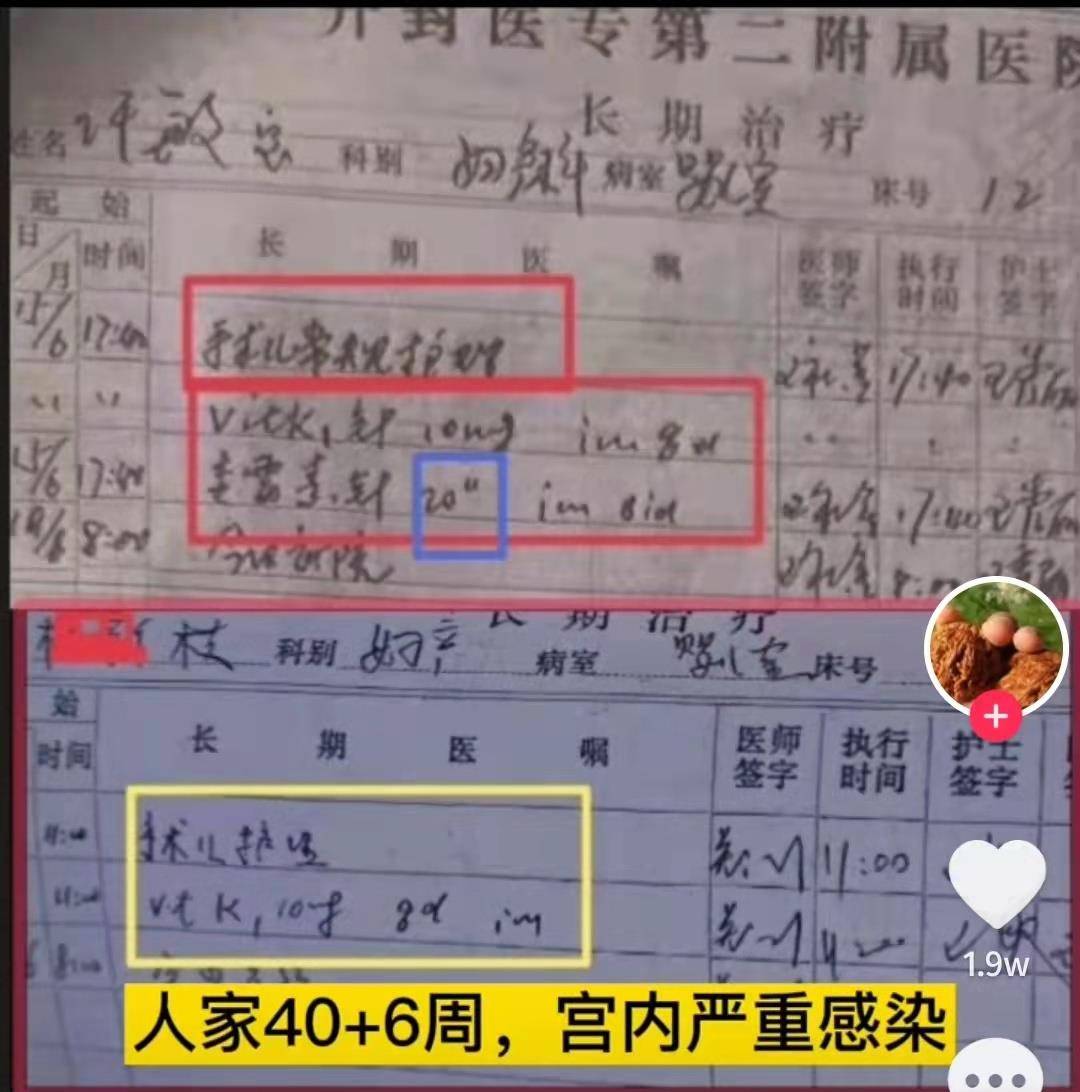 开封医专第二附属医院
长期治疗
姓名 许敏 科别 妇产科 病室 婴儿室 床号 12
起始
日/月 时间 长期医嘱 医师签字 执行时间 护士签字
15/6 17:40 手术儿常规护理 17:40
〃 〃 vitK1针 10mg im qd
15/6 17:40 针 20u im bid 17:40
18/6 8:00 今日出院 8:00
长期治疗
枝 科别 妇产 病室 婴儿室 床号
始
时间 长期医嘱 医师签字 执行时间 护士签字
11:00 手术儿护理 11:00
11:00 vit K1 10mg qd im
8:00
人家40+6周,宫内严重感染
1.9w